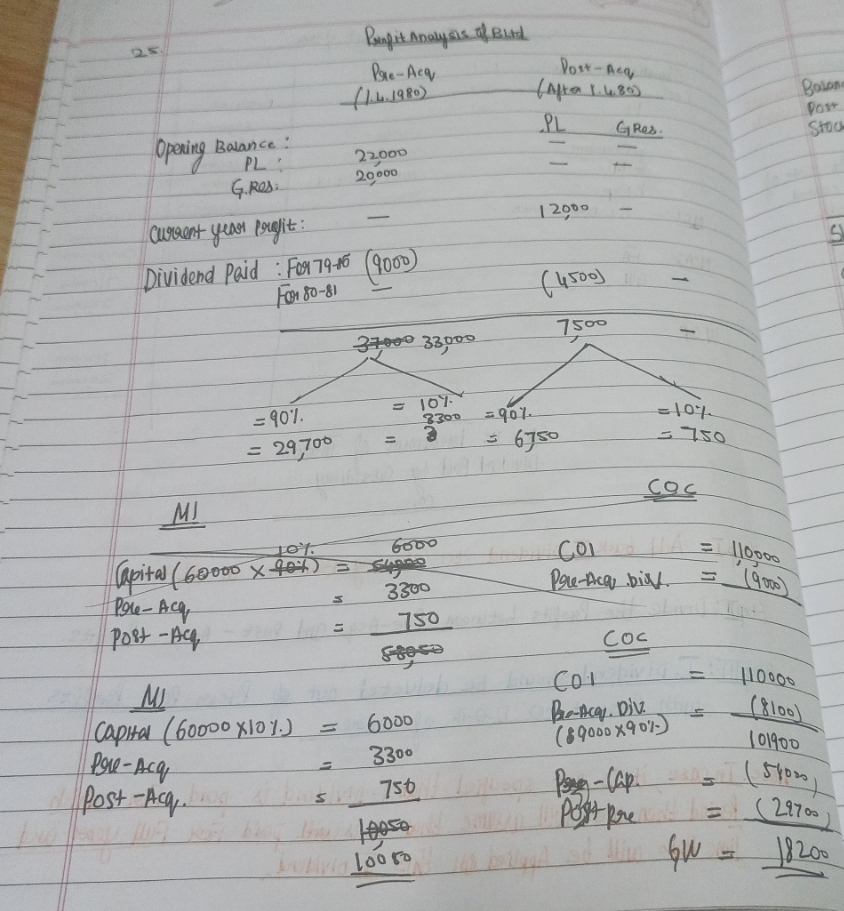 25.
Profit Analysis of B Ltd
Pre-Acq Post-Acq
(1.4.1980) (After 1.4.80)
PL G Res.
Opening Balance: — —
PL : 22,000 — —
G.Res: 20,000
Current year Profit: — 12,000 —
Dividend Paid : For 79-80 (9000)
For 80-81 — (4500) —
37,000 33,000 7500 —
= 90% = 10% = 90% = 10%
3300
= 29,700 = = 6,750 = 750
MI COC
10% 6000
Capital (60000 x 90%) = 54,000 COI = 1,10,000
Pre-Acq = 3300 Pre-Acq. Div. = (9000)
Post-Acq = 750
58,050
COC
MI COI = 110000
Capital (60000 x 10%) = 6000 Pre-Acq. Div = (8100)
(89000 x 90%) 101900
Pre-Acq = 3300
Post-Acq. = 750 -Cap. = (54000)
10050 Pre = (29700)
10050 GW = 18200
Balan
Post
Stoc
S